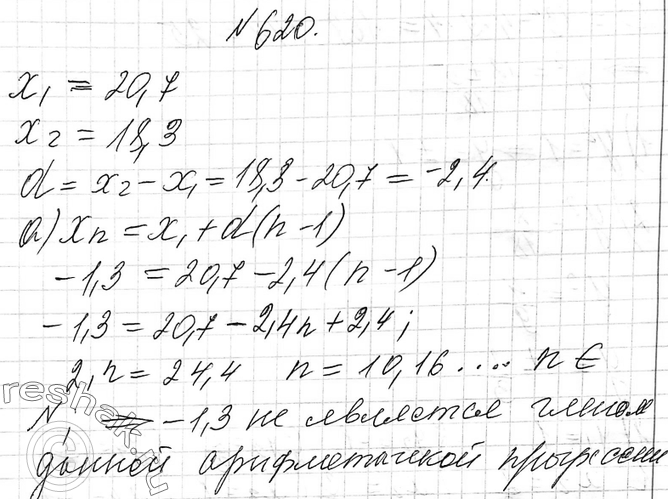 N 620.
x₁ = 20,7
x₂ = 18,3
d = x₂ - x₁ = 18,3 - 20,7 = -2,4.
а) xn = x₁ + d(n - 1)
-1,3 = 20,7 - 2,4(n - 1)
-1,3 = 20,7 - 2,4n + 2,4;
2,n = 24,4 n = 10,16 .... n ∈
N, -1,3 не является членом
данной арифметичкой прогрессии
reshak.ru